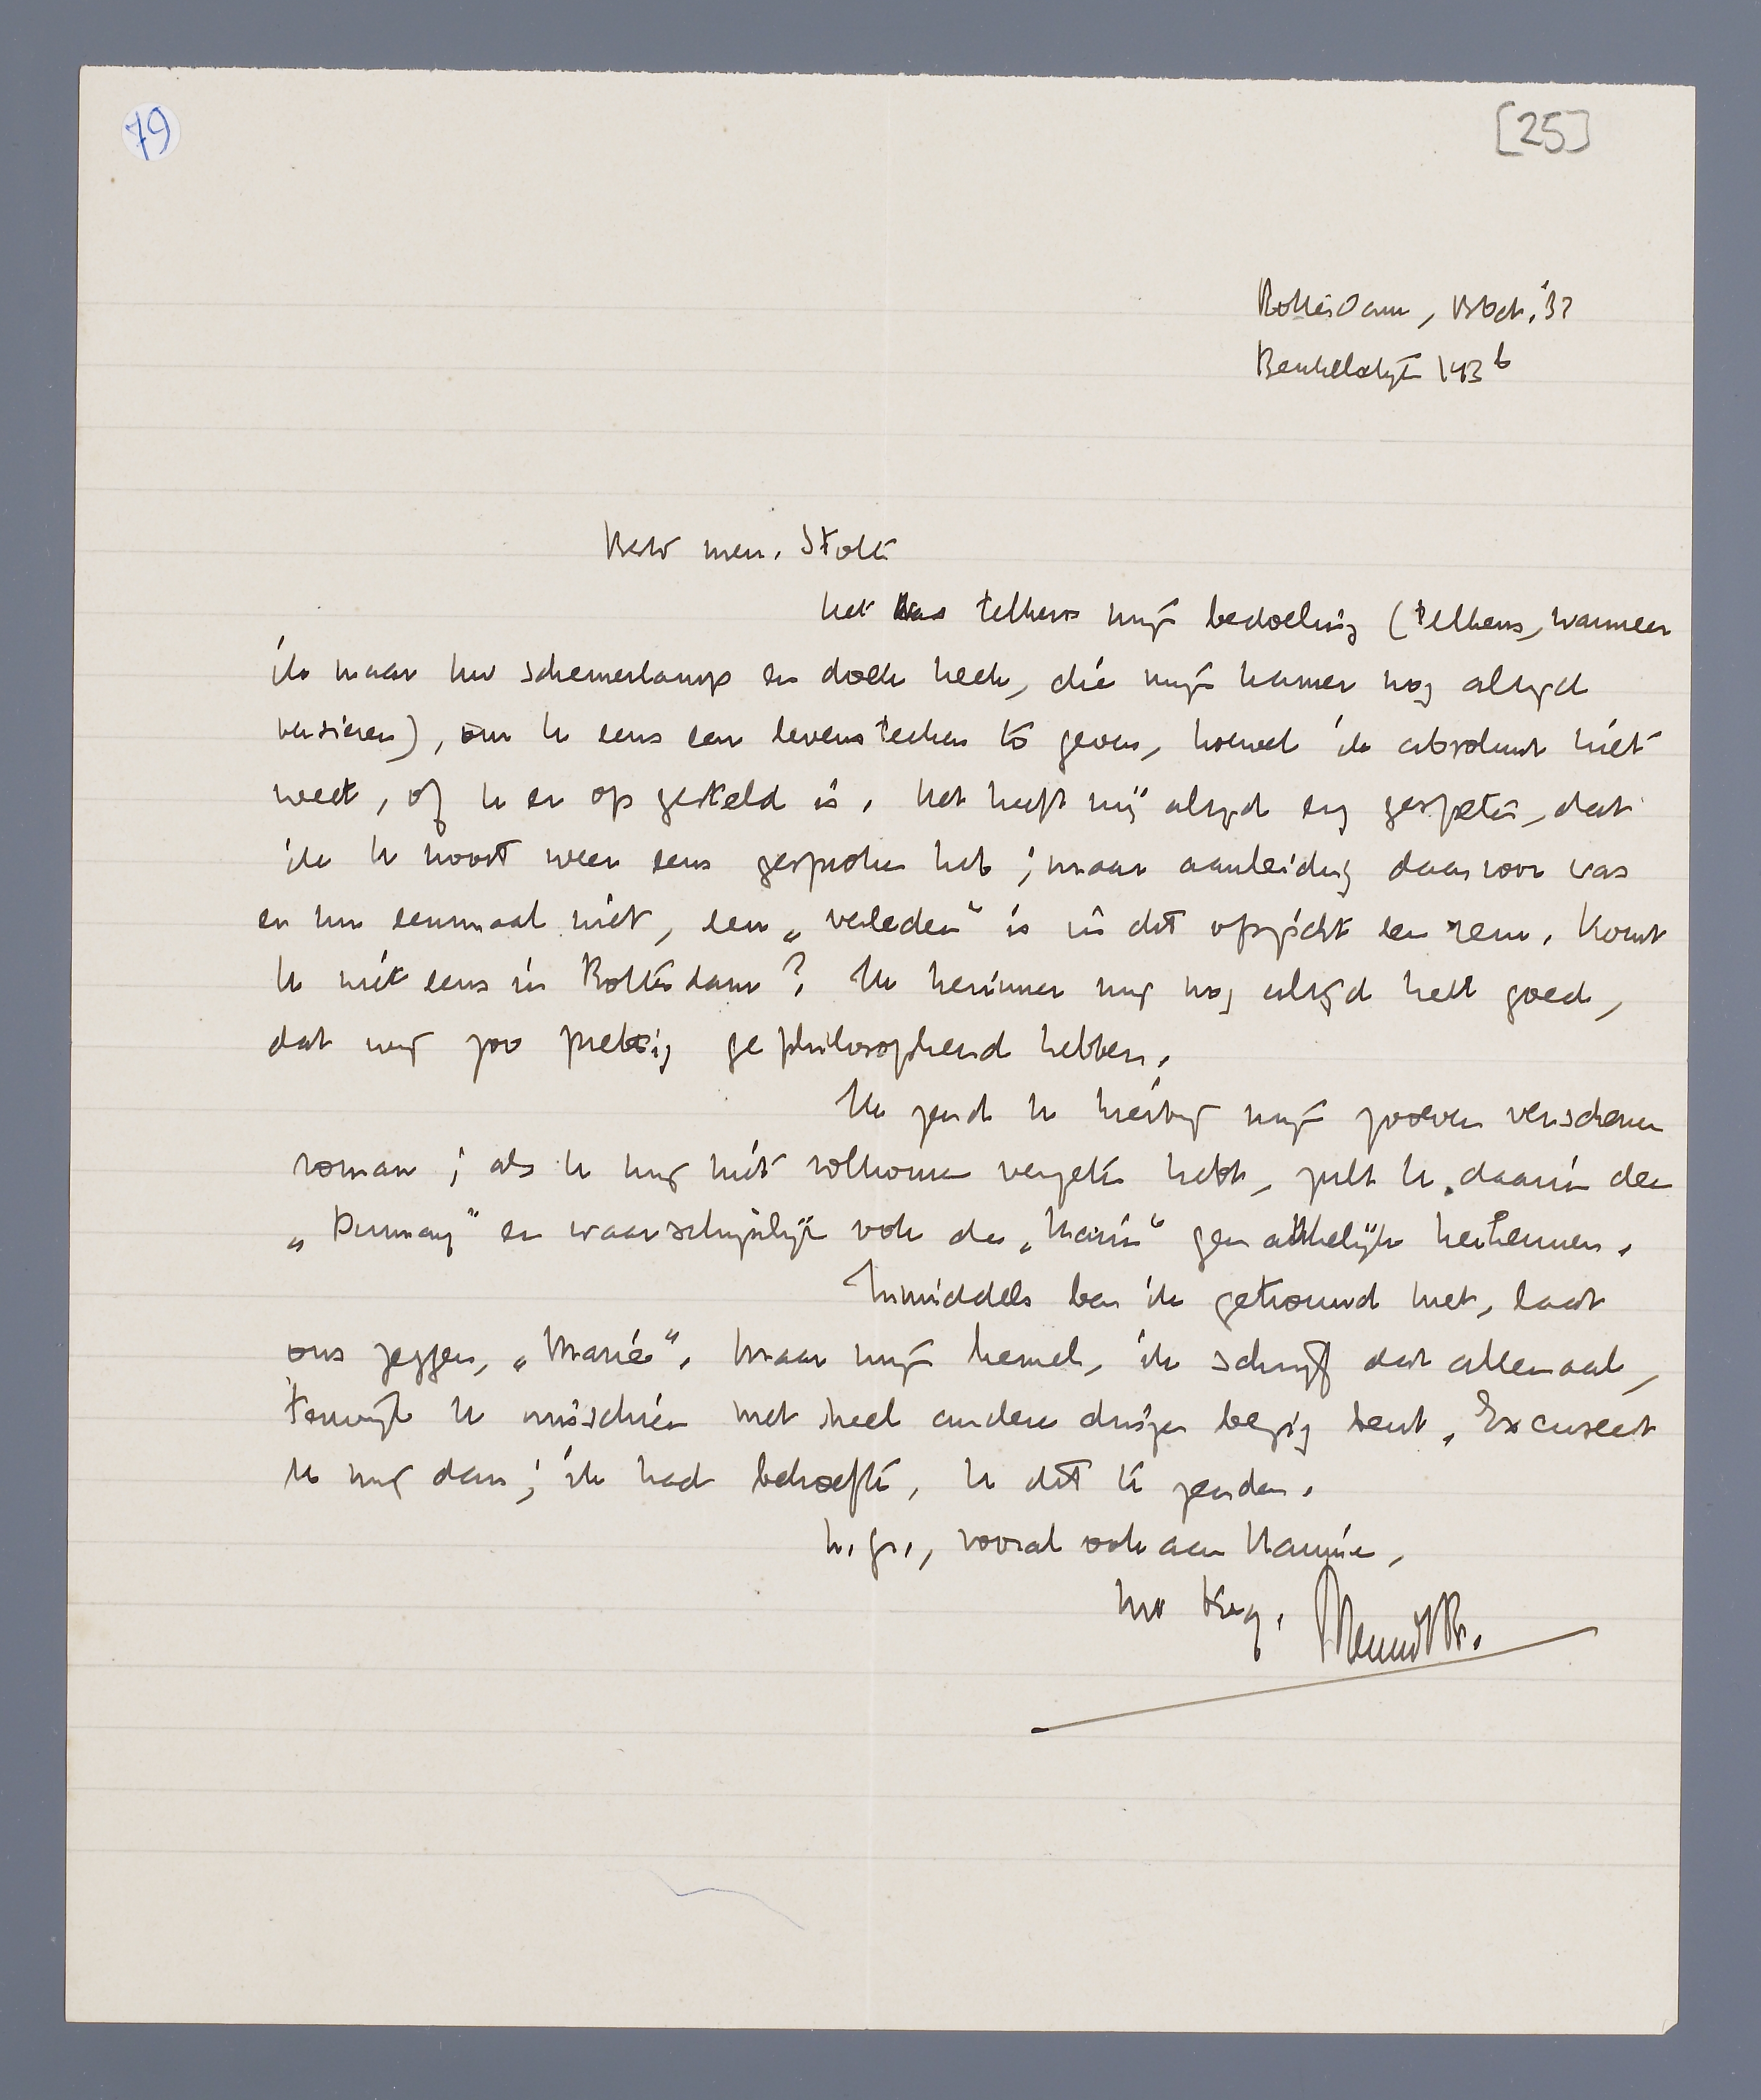 79
[25]
Rotterdam, 13 Oct. '32
Beukelsdijk 143b
Beste mevr. Stolte
het was telkens mijn bedoeling (telkens, wanneer
ik naar uw schemerlamp en doek keek, die mijn kamer nog altijd
versieren), om U eens een levensteeken te geven, hoewel ik absoluut niet
weet, of U er op gesteld is. Het heeft mij altijd erg gespeten, dat
ik U nooit weer eens gesproken heb; maar aanleiding daarvoor was
er nu eenmaal niet, een „verleden" is in dit opzicht een rem. Komt
U niet eens in Rotterdam? Ik herinner mij nog altijd heel goed,
dat wij zoo prettig gephilosopheerd hebben.
Ik zend U hierbij mijn zooeven verschenen
roman; als U mij niet volkomen vergeten hebt, zult U daarin den
„Dumay" en waarschijnlijk ook de „Marie" gemakkelijk herkennen.
Inmiddels ben ik getrouwd met, laat
ons zeggen, „Marie". Maar mijn hemel, ik schrijf dat allemaal,
terwijl U misschien met heel andere dingen bezig bent. Excuseert
U mij dan; ik had behoefte, U dit te zenden.
h. gr., vooral ook aan
Uw dieg. Menno t Br.